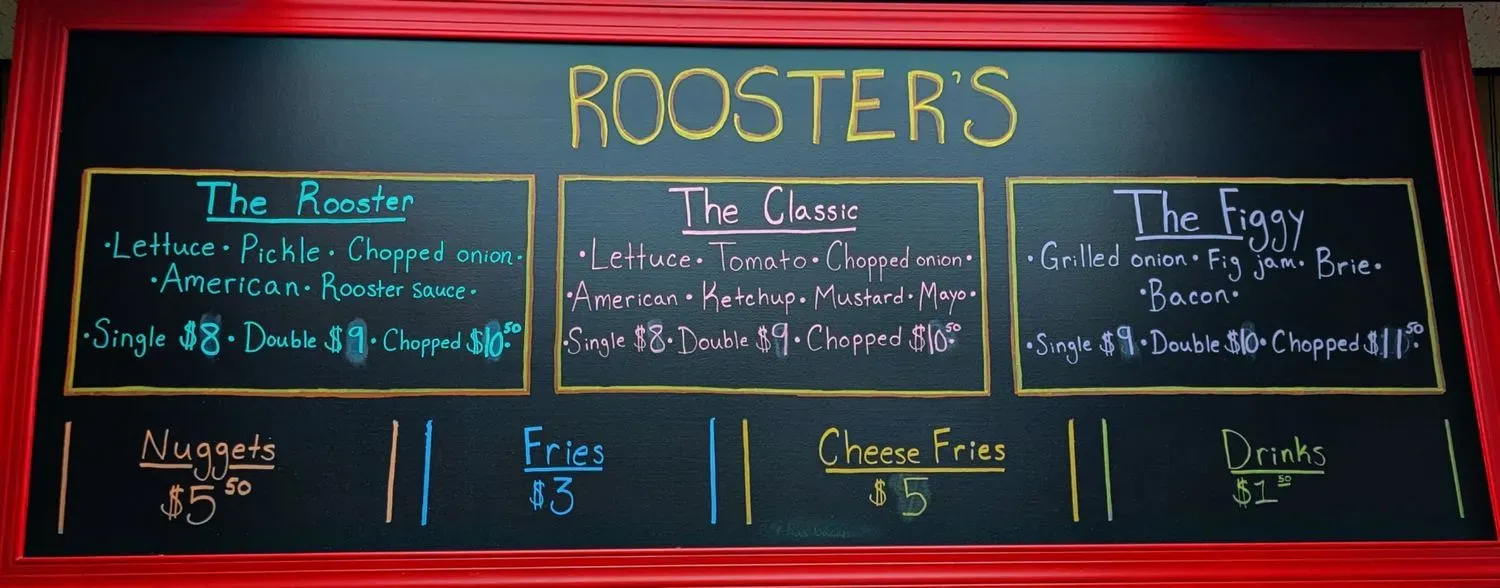 ROOSTER'S
The Rooster
·Lettuce· Pickle· Chopped onion·
·American· Rooster sauce·
·Single $8· Double $9· Chopped $10.50
The Classic
·Lettuce· Tomato· Chopped onion·
·American· Ketchup· Mustard· Mayo·
·Single $8· Double $9· Chopped $10.50
The Figgy
·Grilled onion· Fig jam· Brie·
·Bacon·
·Single $9· Double $10· Chopped $11.50
Nuggets
$5 50
Fries
$3
Cheese Fries
$ 5
Drinks
$1 50